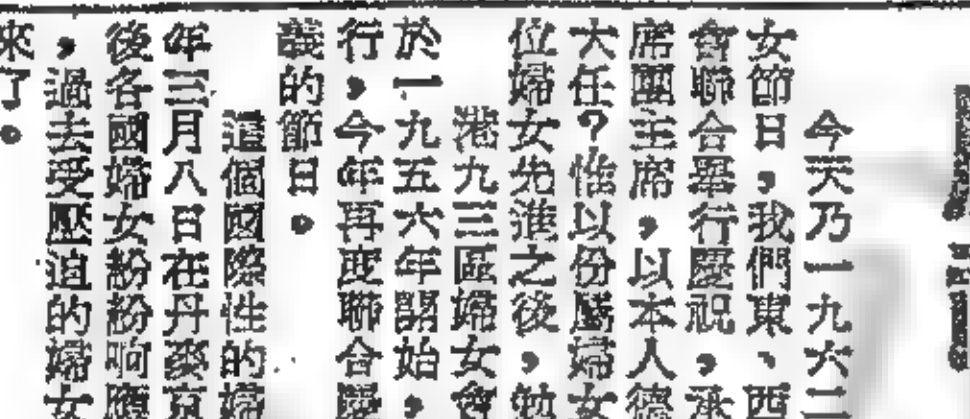 今天乃一九六二
女節日，我們東、西
會聯合舉行慶祝，承
席團主席，以本人德
大任？惟以份屬婦女
位婦女先進之後，勉
港九三區婦女會
於一九五六年開始，
行，今年再度聯合慶
義的節日。
這個國際性的婦
年三月八日在丹麥京
後各國婦女紛紛响應
，過去受壓迫的婦女
來了。